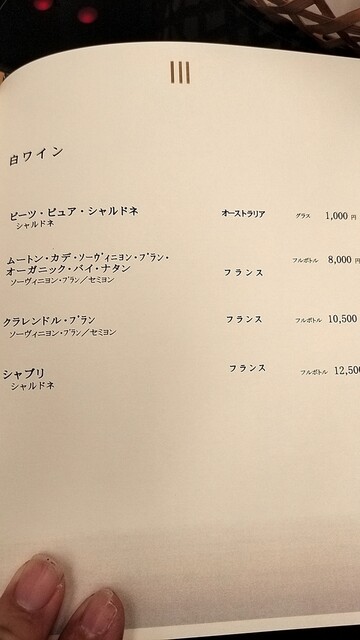 白ワイン
ピーツ・ピュア・シャルドネ オーストラリア グラス 1,000 円
シャルドネ
ムートン・カデ・ソーヴィニヨン・ブラン・
オーガニック・バイ・ナタン フランス フルボトル 8,000 円
ソーヴィニヨン・ブラン／セミヨン
クラレンドル・ブラン フランス フルボトル 10,500
ソーヴィニヨン・ブラン／セミヨン
シャブリ フランス フルボトル 12,500
シャルドネ